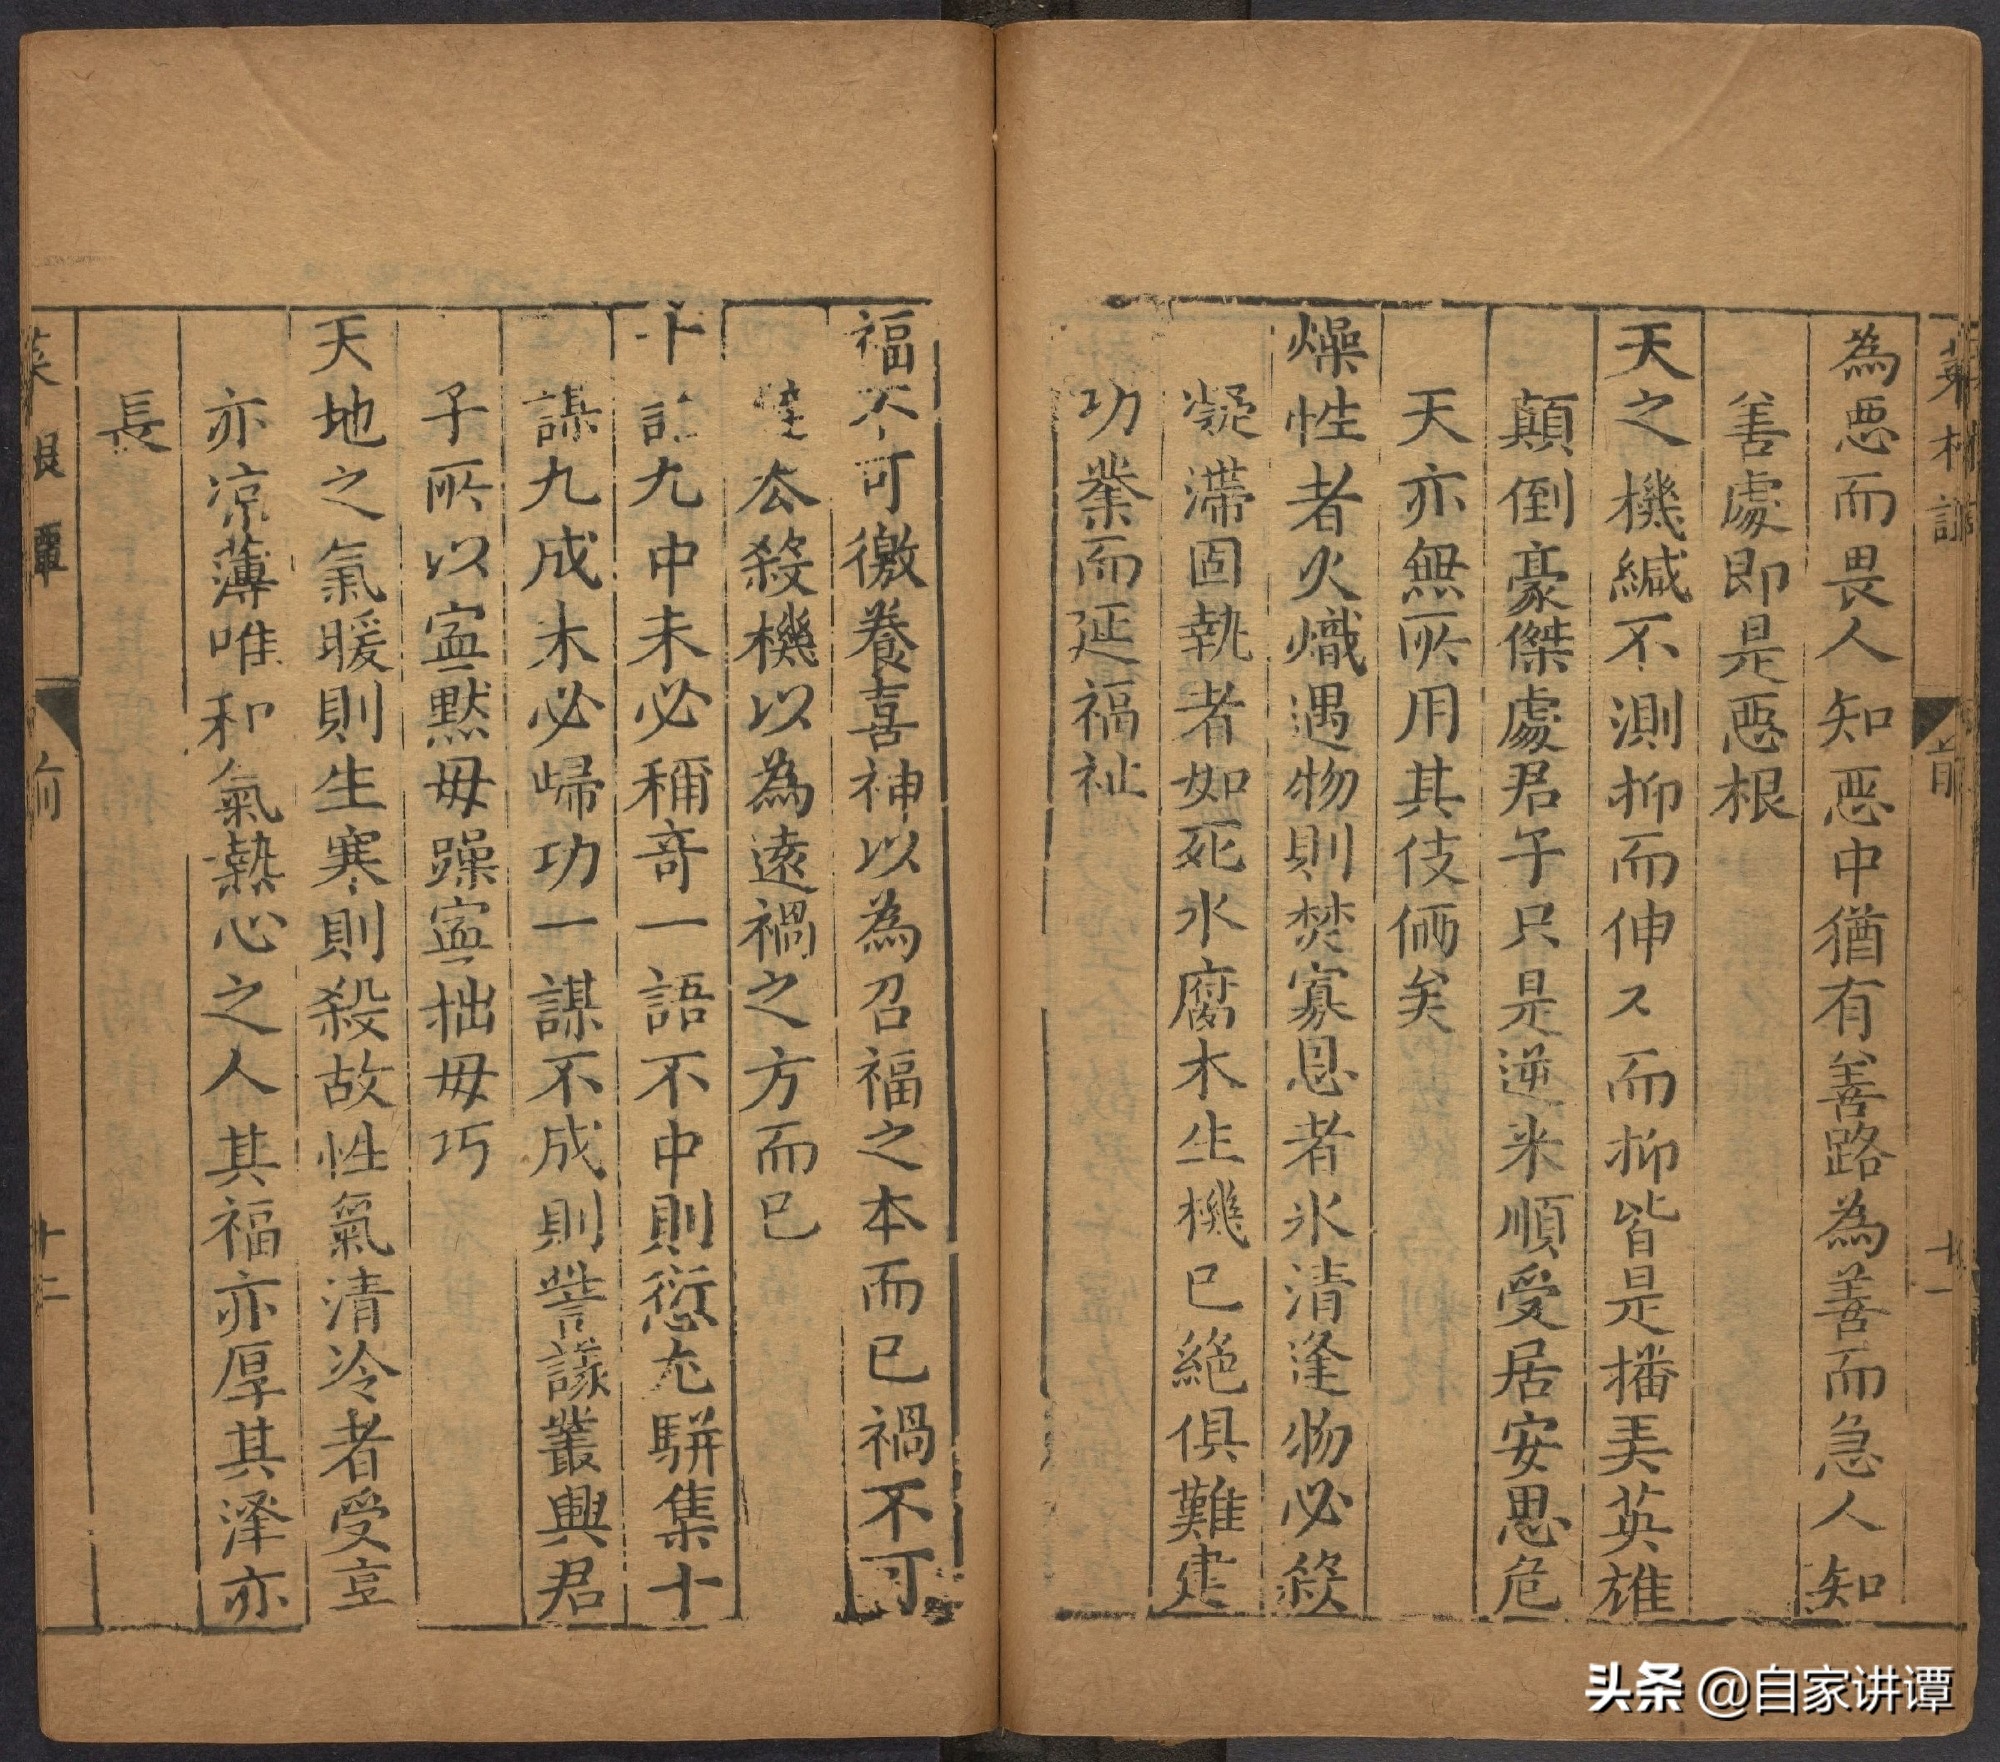 菜根譚 前 十一
為惡而畏人知惡中猶有善路為善而急人知
善處即是惡根
天之機緘不測抑而伸々而抑皆是播弄英雄
顛倒豪傑處君子只是逆来順受居安思危
天亦無所用其伎倆矣
燥性者火熾遇物則焚寡恩者氷清逢物必殺
凝滯固執者如死水腐木生機已絶俱難建
功業而延福祉
福不可徼養喜神以為召福之本而已禍不可
去殺機以為遠禍之方而已
十語九中未必稱奇一語不中則愆尤駢集十
謀九成未必歸功一謀不成則訾議叢興君
子所以寍黙毋躁寍拙毋巧
天地之氣暖則生寒則殺故性氣清冷者受享
亦凉薄唯和氣熱心之人其福亦厚其澤亦
長
菜根譚 前 十二
头条 @自家讲谭